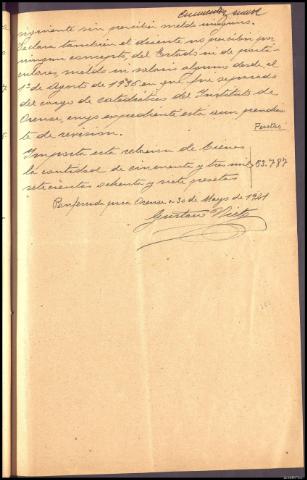 siguiente sin percibir sueldo ninguno.
Declara también el docente no percibir por
ningun concepto, del Estado ni de parti-
culares, sueldo ni salario alguno desde el
1º de Agosto de 1936 en que fue separado
del cargo de catedrático del Instituto de
Orense, cuyo expediente esta aun pendien-
te de revision.
Pesetas
Importa esta relacion de bienes
la cantidad de cincuenta y tres mil
53.787
setecientas ochenta y siete pesetas
Ponferrada para Orense a 30 de Mayo de 1941
Gustavo